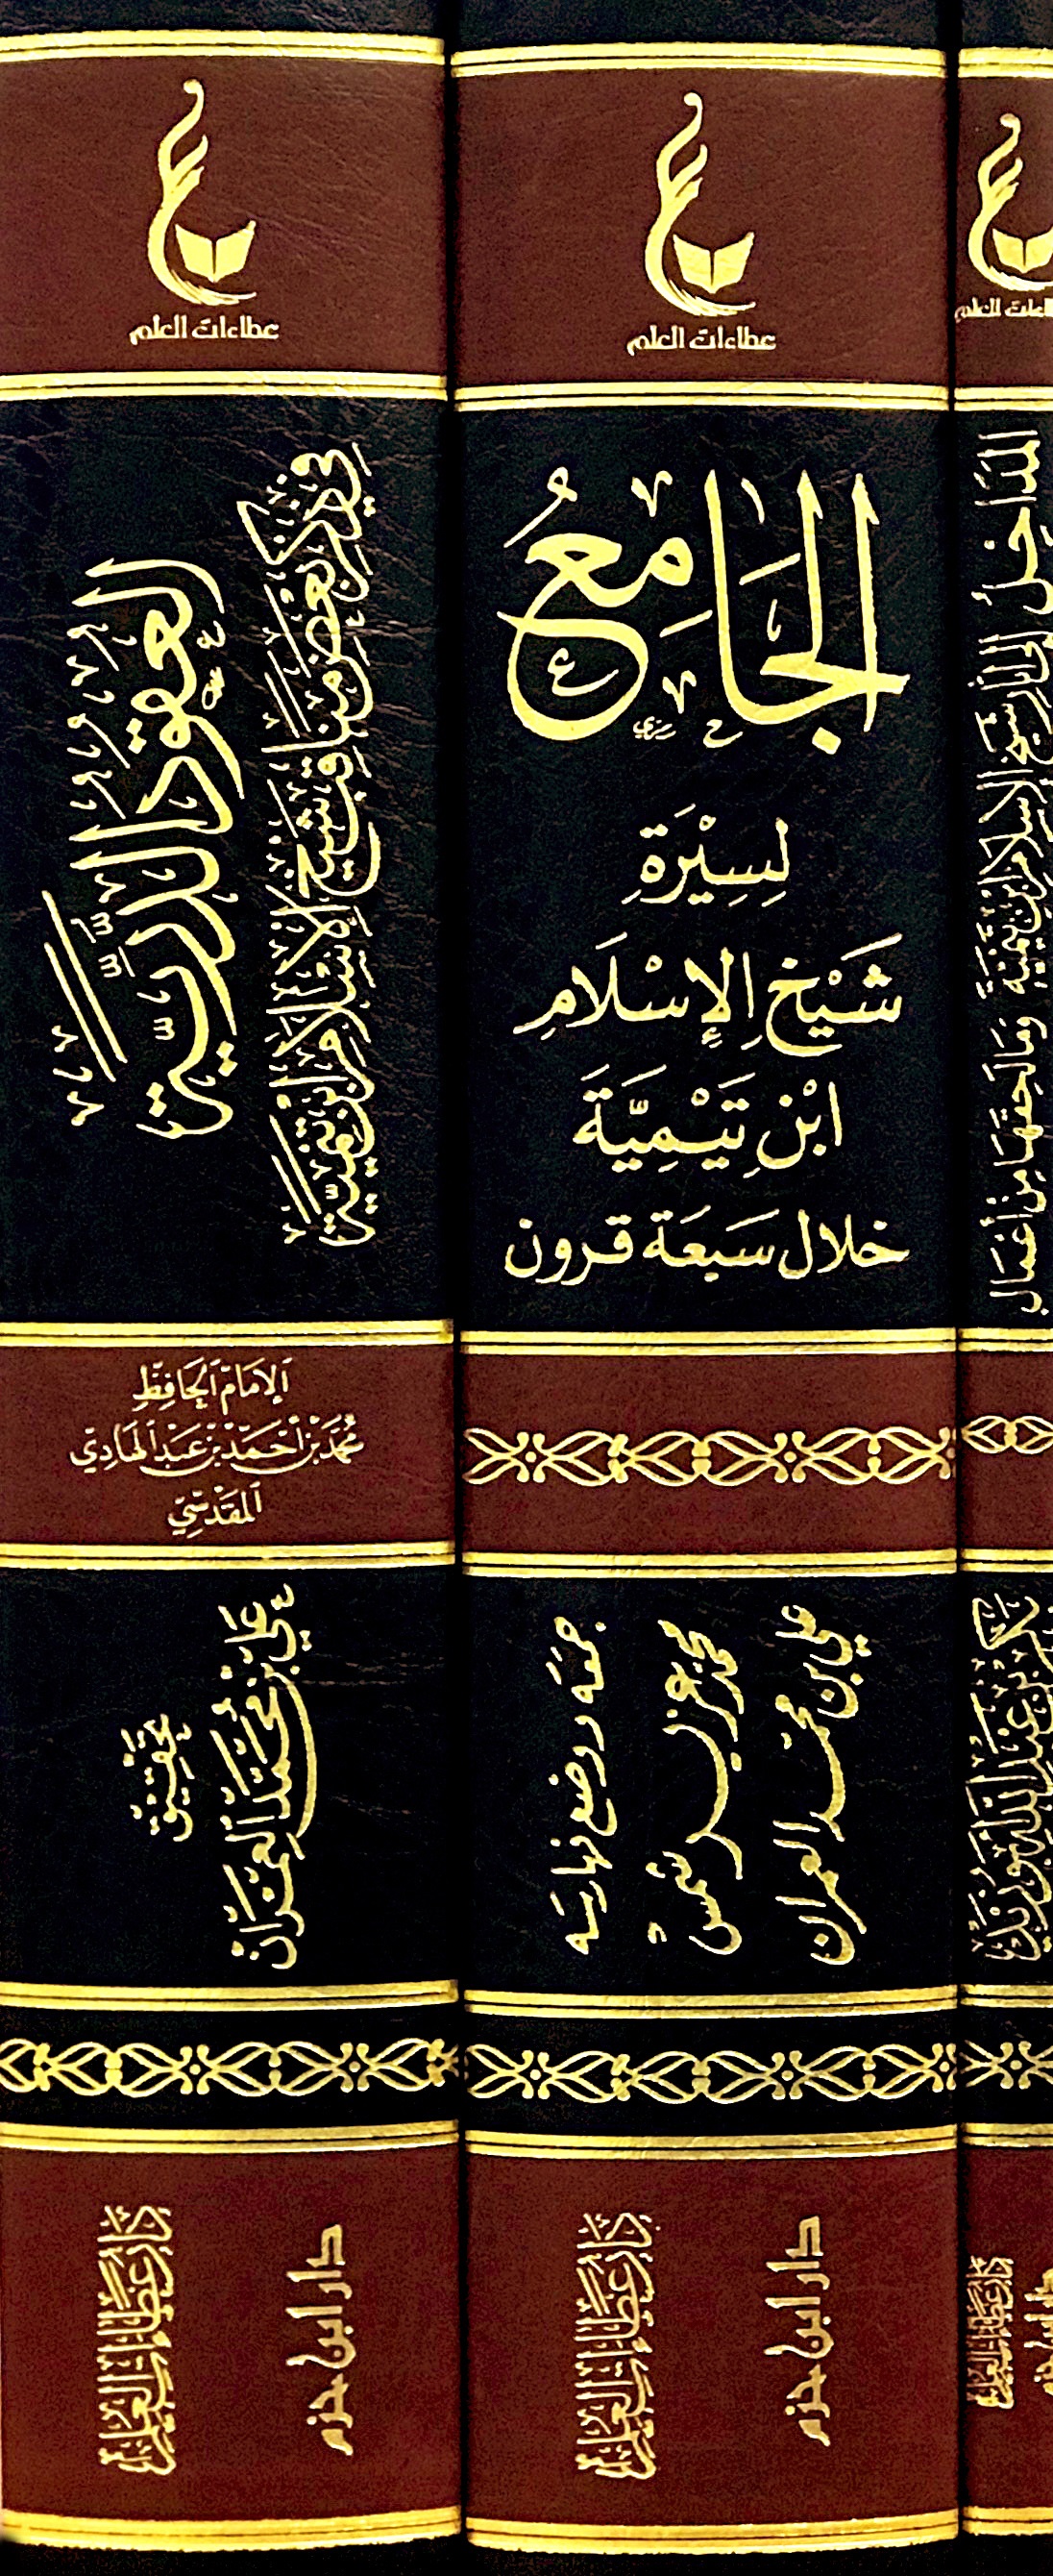 عطاءات العلم
العقود الدرية
في ذكر بعض مناقب شيخ الإسلام ابن تيمية
الإمام الحافظ
محمد بن أحمد بن عبد الهادي
المقدسي
تحقيق
علي بن محمد العمران
دار عطاءات العلم
دار ابن حزم
عطاءات العلم
الجامع
لسيرة
شيخ الإسلام
ابن تيمية
خلال سبعة قرون
جمعه ووضع فهارسه
محمد عزير شمس
علي بن محمد العمران
دار عطاءات العلم
دار ابن حزم
عطاءات العلم
المداخل إلى آثار شيخ الإسلام ابن تيمية وما لحقها من أعمال
بكر بن عبد الله أبو زيد
دار عطاءات العلم